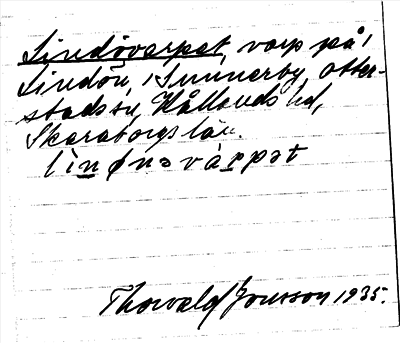 Lindövarpet, varp på
Lindön, i Sunnerby, Otter-
stads sn, Kållands hd,
Skaraborgs län.
lìnønəvàrpət
Thorvald Jonsson 1935.